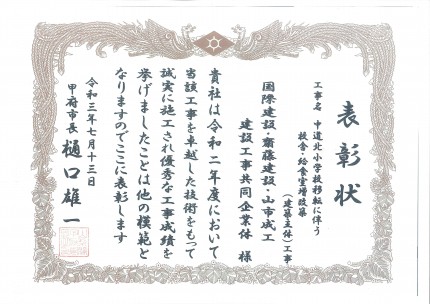 表彰状
工事名 中道北小学校移転に伴う
校舎・給食室増改築
(建築主体)工事
国際建設・齋藤建設・山市成工
建設工事共同企業体 様
貴社は令和二年度において
当該工事を卓越した技術をもって
誠実に施工され優秀な工事成績を
挙げましたことは他の模範と
なりますのでここに表彰します
令和三年七月十三日
甲府市長 樋口雄一